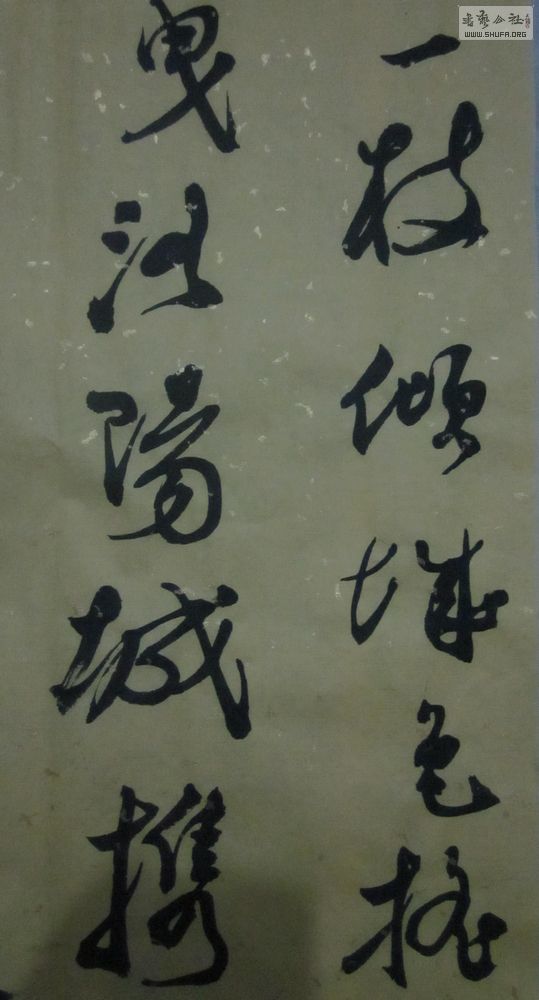 一枝傾城色搖
曳洛陽城攜
書藝公社
WWW.SHUFA.ORG